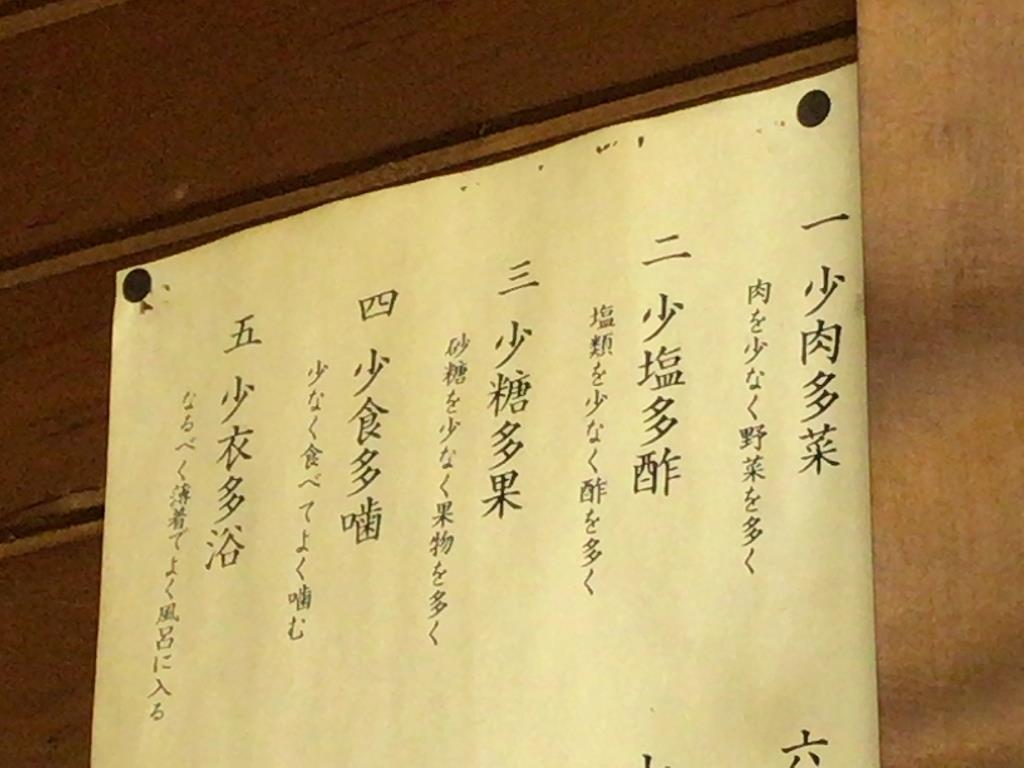 一 少肉多菜
肉を少なく野菜を多く
二 少塩多酢
塩類を少なく酢を多く
三 少糖多果
砂糖を少なく果物を多く
四 少食多噛
少なく食べてよく噛む
五 少衣多浴
なるべく薄着でよく風呂に入る
六